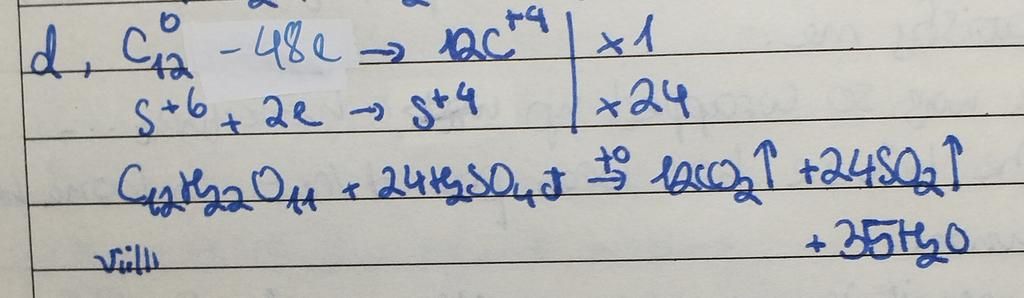 d, C₁₂⁰ - 48e → 12C⁺⁴ | x 1
S⁺⁶ + 2e → S⁺⁴ | x 24
C₁₂H₂₂O₁₁ + 24H₂SO₄đ →t⁰ 12CO₂↑ + 24SO₂↑
+ 35H₂O